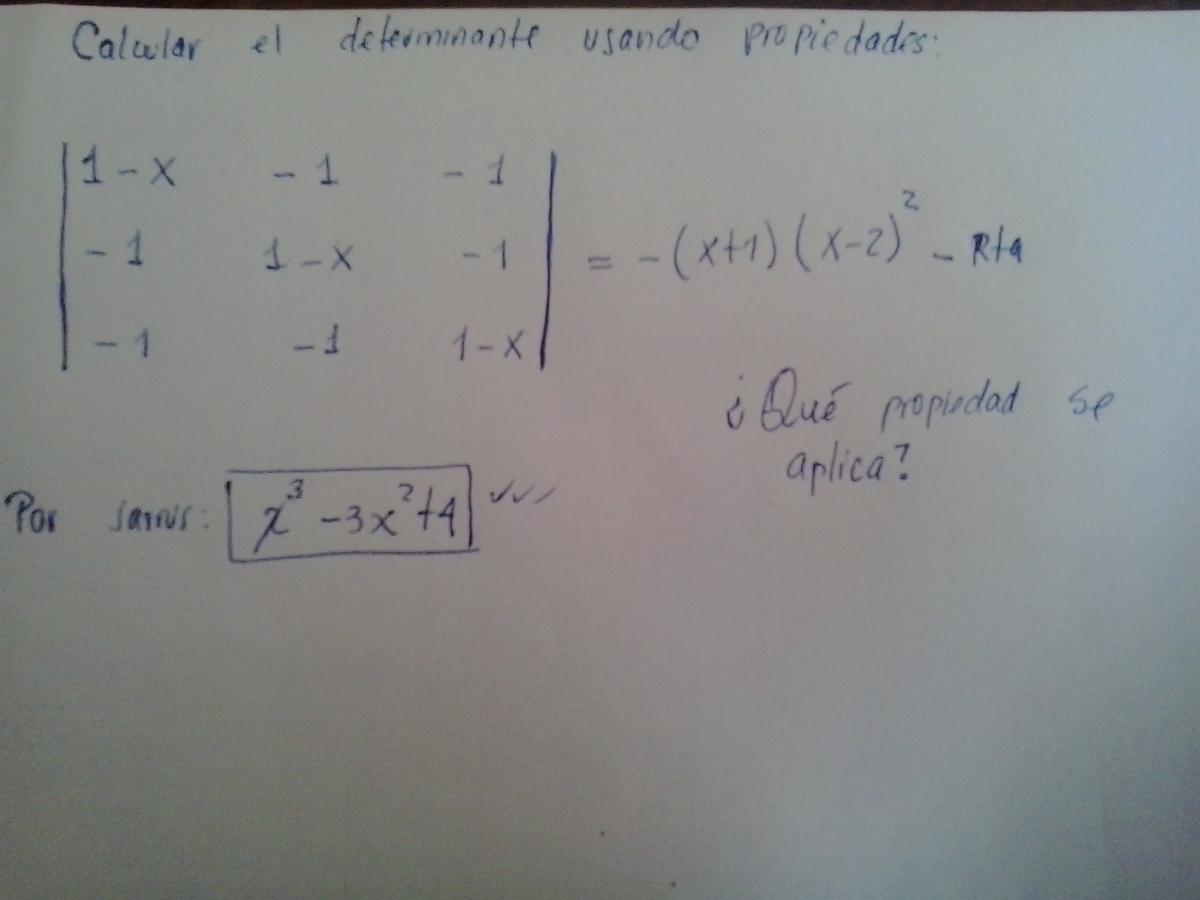 Calcular el determinante usando propiedades:
| 1-x -1 -1 |
| -1 1-x -1 | = -(x+1)(x-2)² - Rta
| -1 -1 1-x |
¿Qué propiedad se
aplica?
Por sarrus: x³ -3x² +4 ✓✓✓